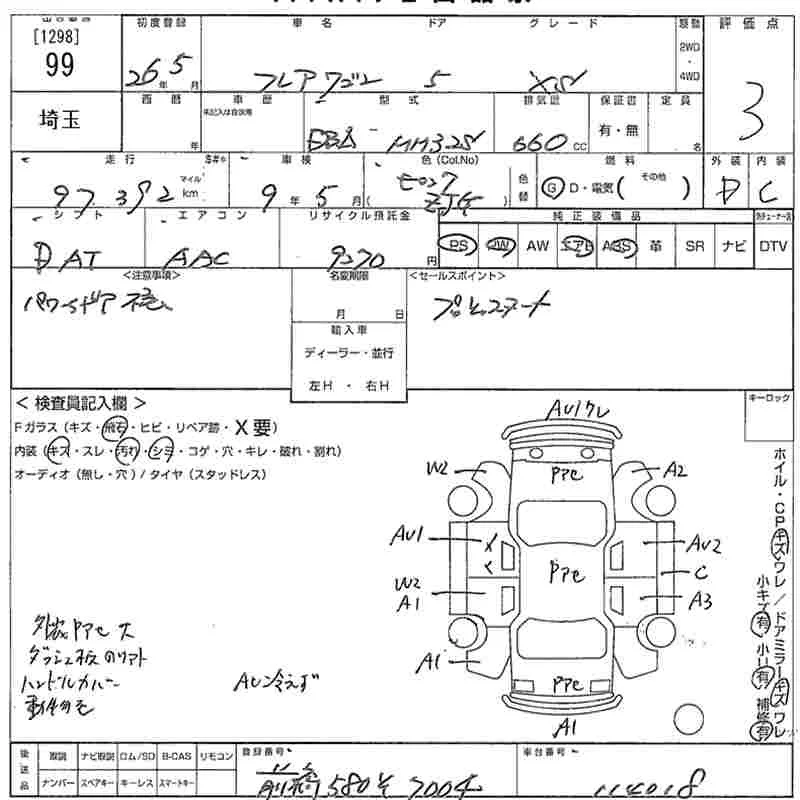 [1298]
99
初度登録
26年 5月
車名
フレアワゴン
ドア
5
グレード
XS
駆動
2WD
・
4WD
評価点
3
埼玉
西暦
年
車歴
未記入は自家用
型式
DBA - MM32S
排気量
660 CC
保証書
有・無
定員
名
走行
97,392
マイル
km
車検
9年 5月
色 (Col.No)
ZJ
色替
燃料
G D・電気 (その他)
外装
D
内装
C
シフト
D AT
エアコン
AAC
リサイクル預託金
9270円
純正装備品
PS PW AW エアB ABS 革 SR ナビ DTV
<注意事項>
名変期限
月 日
<セールスポイント>
輸入車
ディーラー・並行
左H ・ 右H
キーロック
< 検査員記入欄 >
Fガラス (キズ・飛石・ヒビ・リペア跡・X要)
内装 (キズ・スレ・汚れ・シミ・コゲ・穴・キレ・破れ・割れ)
オーディオ (無し・穴) / タイヤ (スタッドレス)
AU1 ワレ
W2
A2
PPC
AU1
AU2
PPC
C
W2
A1
A3
A1
PPC
A1
外装 PPC 大
ハンドルカバー
AC冷えず
ホイル・CPキズ・ワレ / ドアミラーキズ・ワレ
小キズ有 小凹有 補修有
後送品
取説 ナビ取説 ロム/SD B-CAS リモコン
ナンバー スペアキー キーレス スマートキー
登録番号
前橋 580 そ 7004
車台番号
114018